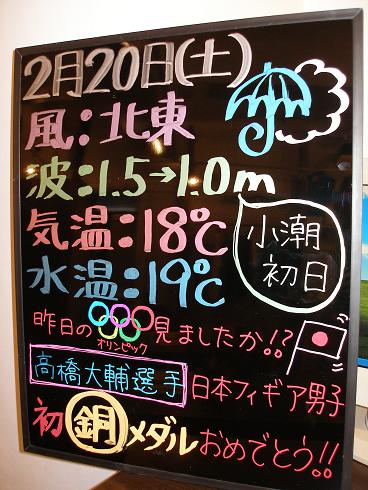 2月20日(土)
風:北東
波:1.5→1.0m
気温:18℃
水温:19℃
小潮
初日
昨日の
オリンピック
見ましたか!!?
高橋大輔選手
日本フィギア男子
初銅メダルおめでとう!!